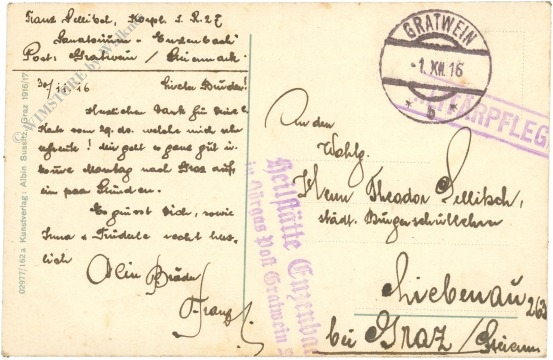 Franz Pellitsch, Korpl. I. R. 27
Sanatorium - Enzenbach
Post: Gratwein / Steiermark.
30/11. 16 Lieber Bruder!
Herzlichen Dank für Deine l.
Karte vom 29. ds. welche mich sehr
erfreute! Mir geht es ganz gut u.
komme Montag nach Graz auf
ein paar Stunden.
Es grüsst Dich, sowie
Anna & Trüderle recht herz-
lich
Dein Bruder
Franz
GRATWEIN
-1.XII.16
* b *
An den
Wohlg.
Herrn Theodor Pellitsch,
städt. Bürgerschullehrer
Liebenau 263
bei Graz / Steierm.
Heilstätte Enzenbach
Post Gratwein
02977/152a Kunstverlag: Albin Sussitz, Graz 1916/17